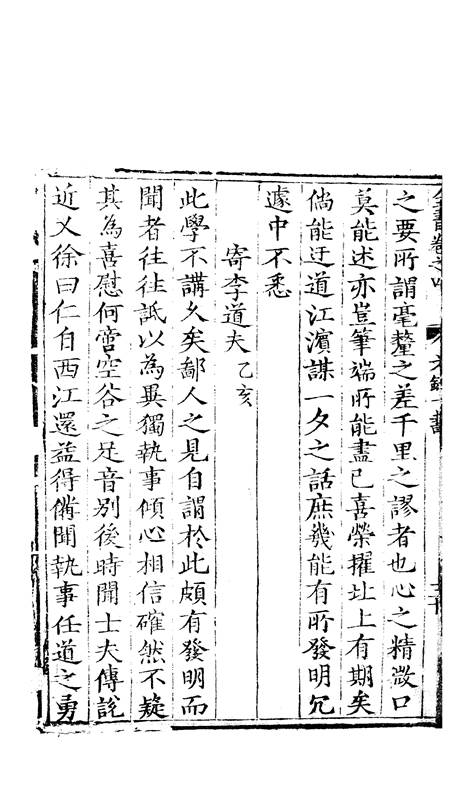 之要所謂毫釐之差千里之謬者也心之精微口
莫能述亦豈筆端所能盡已喜榮擢北上有期矣
倘能迂道江濱謀一夕之話庶幾能有所發明冗
遽中不悉
寄李道夫乙亥
此學不講久矣鄙人之見自謂於此頗有發明而
聞者往往詆以為異獨執事傾心相信確然不疑
其為喜慰何啻空谷之足音別後時聞士夫傳說
近又徐曰仁自西江還益得備聞執事任道之勇